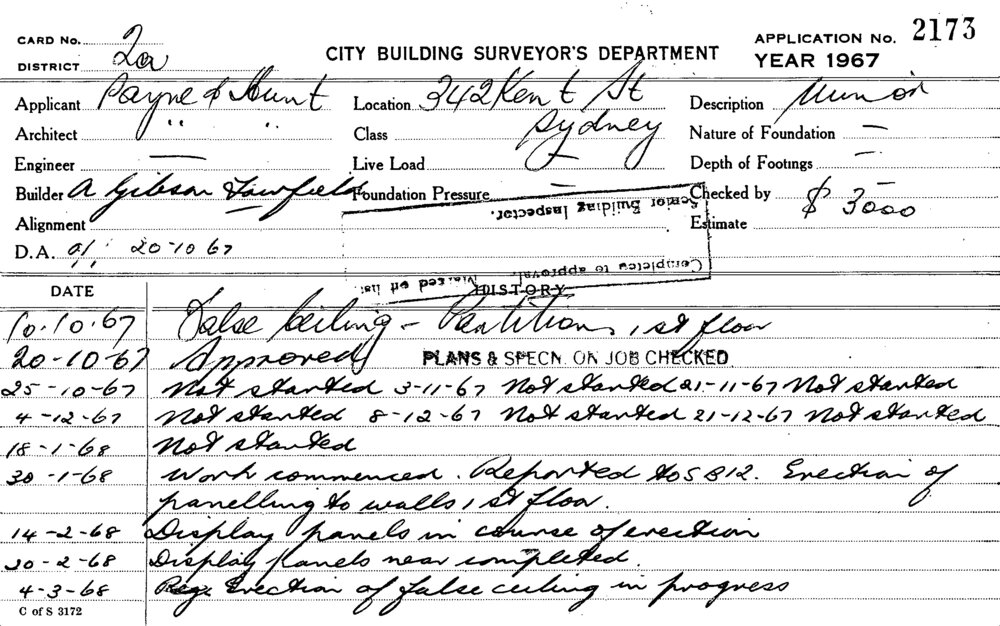 CARD No. 2a
DISTRICT
CITY BUILDING SURVEYOR'S DEPARTMENT
APPLICATION No. 2173
YEAR 1967
Applicant Payne & Hunt Location 342 Kent St Description Minor
Architect " " Class Sydney Nature of Foundation —
Engineer — Live Load — Depth of Footings —
Builder A Gibson Fairfield Foundation Pressure — Checked by —
Senior Building Inspector.
Alignment — Estimate $ 3000
D.A. 20-10-67
Completed to approval.
Marked off list
DATE HISTORY
10.10.67 False Ceiling - Partitions 1st floor
20-10-67 Approved PLANS & SPECN. ON JOB CHECKED
25-10-67 Not started 3-11-67 Not started 21-11-67 Not started
4-12-67 Not started 8-12-67 Not started 21-12-67 Not started
18-1-68 Not started
30-1-68 Work commenced. Reported to SB12. Erection of
panelling to walls 1st floor.
14-2-68 Display panels in course of erection
20-2-68 Display panels near completed.
4-3-68 Erection of false ceiling in progress
C of S 3172